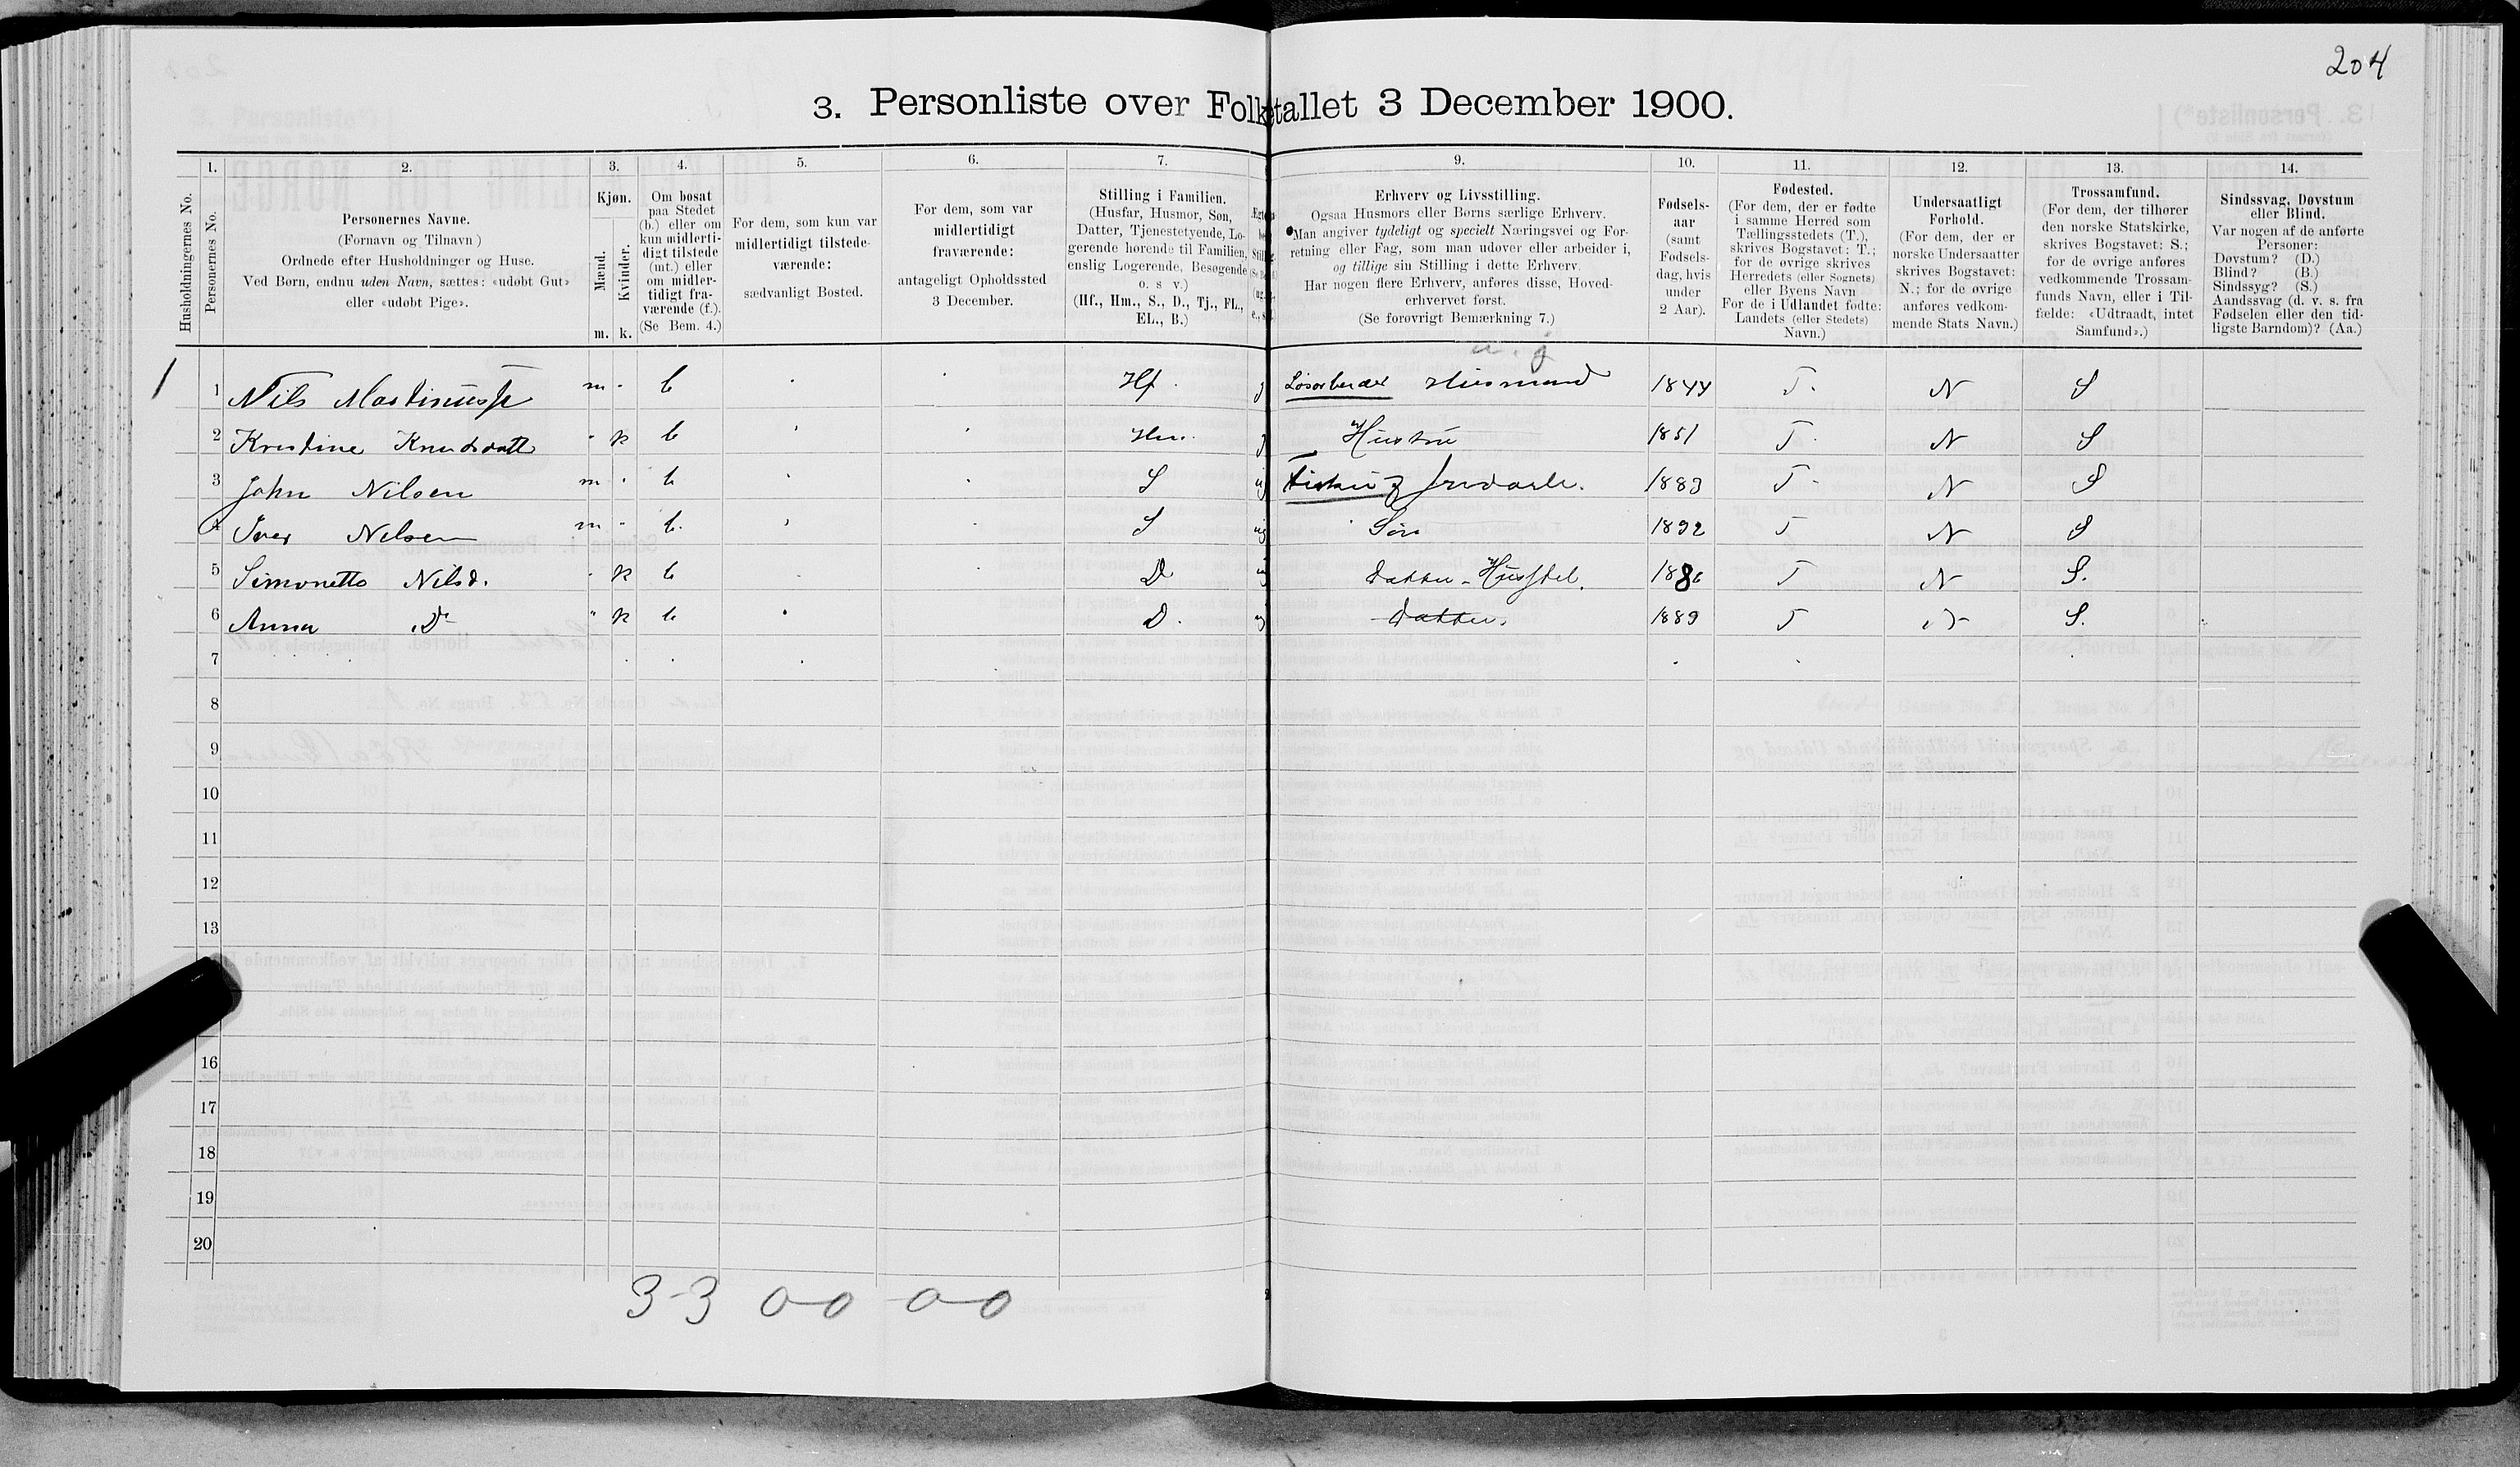 204
3. Personliste over Folketallet 3 December 1900.
1. 2. 3. 4. 5. 6. 7. 9. 10. 11. 12. 13. 14.
Husholdningernes No.
Personernes No.
Personernes Navne.
(Fornavn og Tilnavn)
Ordnede efter Husholdninger og Huse.
Ved Børn, endnu uden Navn, sættes: «udøbt Gut»
eller «udøbt Pige».
Kjøn.
Mænd.
Kvinder.
m. k.
Om bosat
paa Stedet
(b.) eller om
kun midlerti-
digt tilstede
(mt.) eller
om midler-
tidigt fra-
værende (f.).
(Se Bem. 4.)
For dem, som kun var
midlertidigt tilstede-
værende:
sædvanligt Bosted.
For dem, som var
midlertidigt
fraværende:
antageligt Opholdssted
3 December.
Stilling i Familien.
(Husfar, Husmor, Søn,
Datter, Tjenestetyende, Lo-
gerende hørende til Familien,
enslig Logerende, Besøgende
o. s. v.)
(Hf., Hm., S., D., Tj., FL.,
EL., B.)
Erhverv og Livsstilling.
Ogsaa Husmors eller Børns særlige Erhverv.
Man angiver tydeligt og specielt Næringsvei og For-
retning eller Fag, som man udover eller arbeider i,
og tillige sin Stilling i dette Erhverv.
Har nogen flere Erhverv, anføres disse, Hoved-
erhvervet først.
(Se forøvrigt Bemærkning 7.)
Fødsels-
aar
(samt
Fødsels-
dag, hvis
under
2 Aar).
Fødested.
(For dem, der er fødte
i samme Herred som
Tællingsstedets (T.),
skrives Bogstavet: T.;
for de øvrige skrives
Herredets (eller Sognets)
eller Byens Navn
For de i Udlandet fødte:
Landets (eller Stedets)
Navn.)
Undersaatligt
Forhold.
(For dem, der er
norske Undersaatter
skrives Bogstavet:
N.; for de øvrige
anføres vedkom-
mende Stats Navn.)
Trossamfund.
(For dem, der tilhører
den norske Statskirke,
skrives Bogstavet: S.;
for de øvrige anføres
vedkommende Trossam-
funds Navn, eller i Til-
fælde: «Udtraadt, intet
Samfund».)
Sindssvag, Døvstum
eller Blind.
Var nogen af de anførte
Personer:
Døvstum? (D.)
Blind? (B.)
Sindssyg? (S.)
Aandssvag (d. v. s. fra
Fødselen eller den tid-
ligste Barndom)? (Aa.)
1 1 Nils Martinuss m b Hf. g Løsarbeider Husmand 1844 T. N S
2 Kristine Knudsdatt k b Hm. g Hustru 1851 T. N S
3 John Nilsen m b S ug 1883 T N S
4 Iver Nilsen m b. S ug Søn 1892 T N S
5 Simonette Nilsd. k b D ug Datter - Husstel. 1886 T N S.
6 Anna D k b D. ug Datter. 1889 T N S.
7
8
9
10
11
12
13
16
17
18
19
20
3-3 0-0 0-0